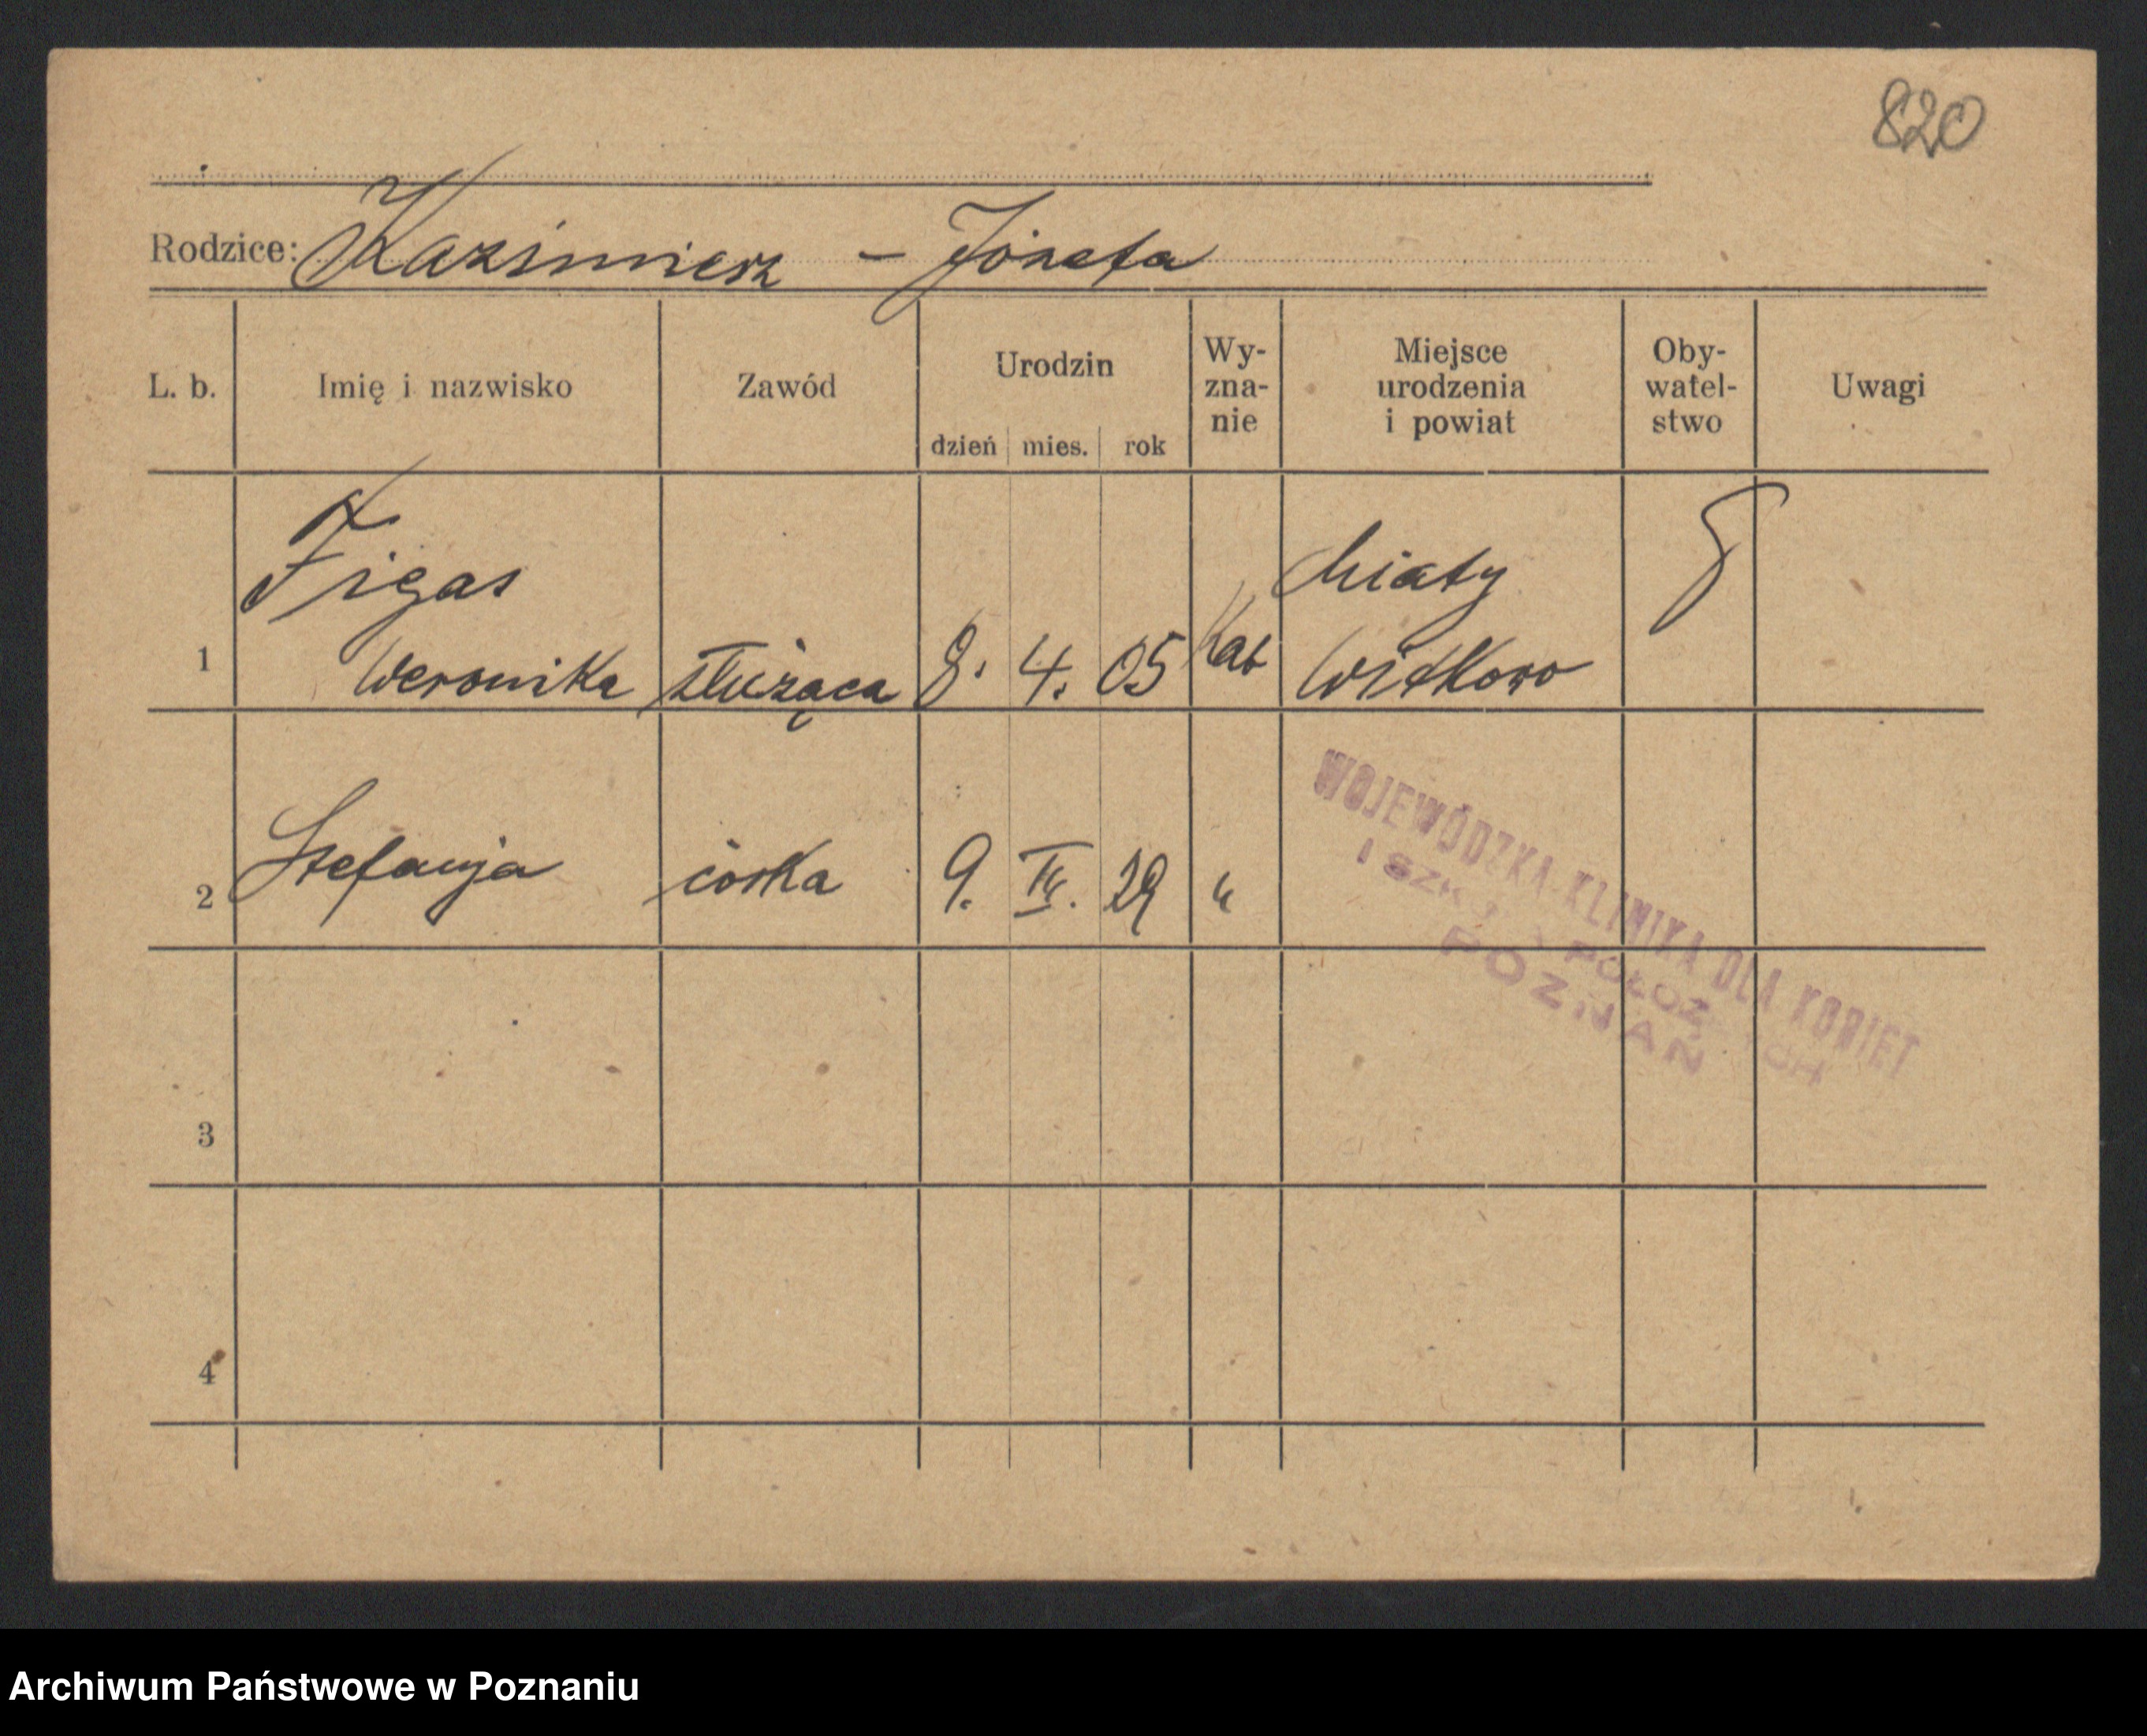 820
Rodzice: Kazimierz – Józefa
L. b. Imię i nazwisko Zawód Urodzin dzień mies. rok Wy-zna-nie Miejsce urodzenia i powiat Oby-watel-stwo Uwagi
Figas Miaty
1 Weronika służąca 8. 4. 05 Kat Witkowo
2 Stefanja córka 9. IV. 29 "
WOJEWÓDZKA KLINIKA DLA KOBIET
POZNAŃ
3
4
Archiwum Państwowe w Poznaniu